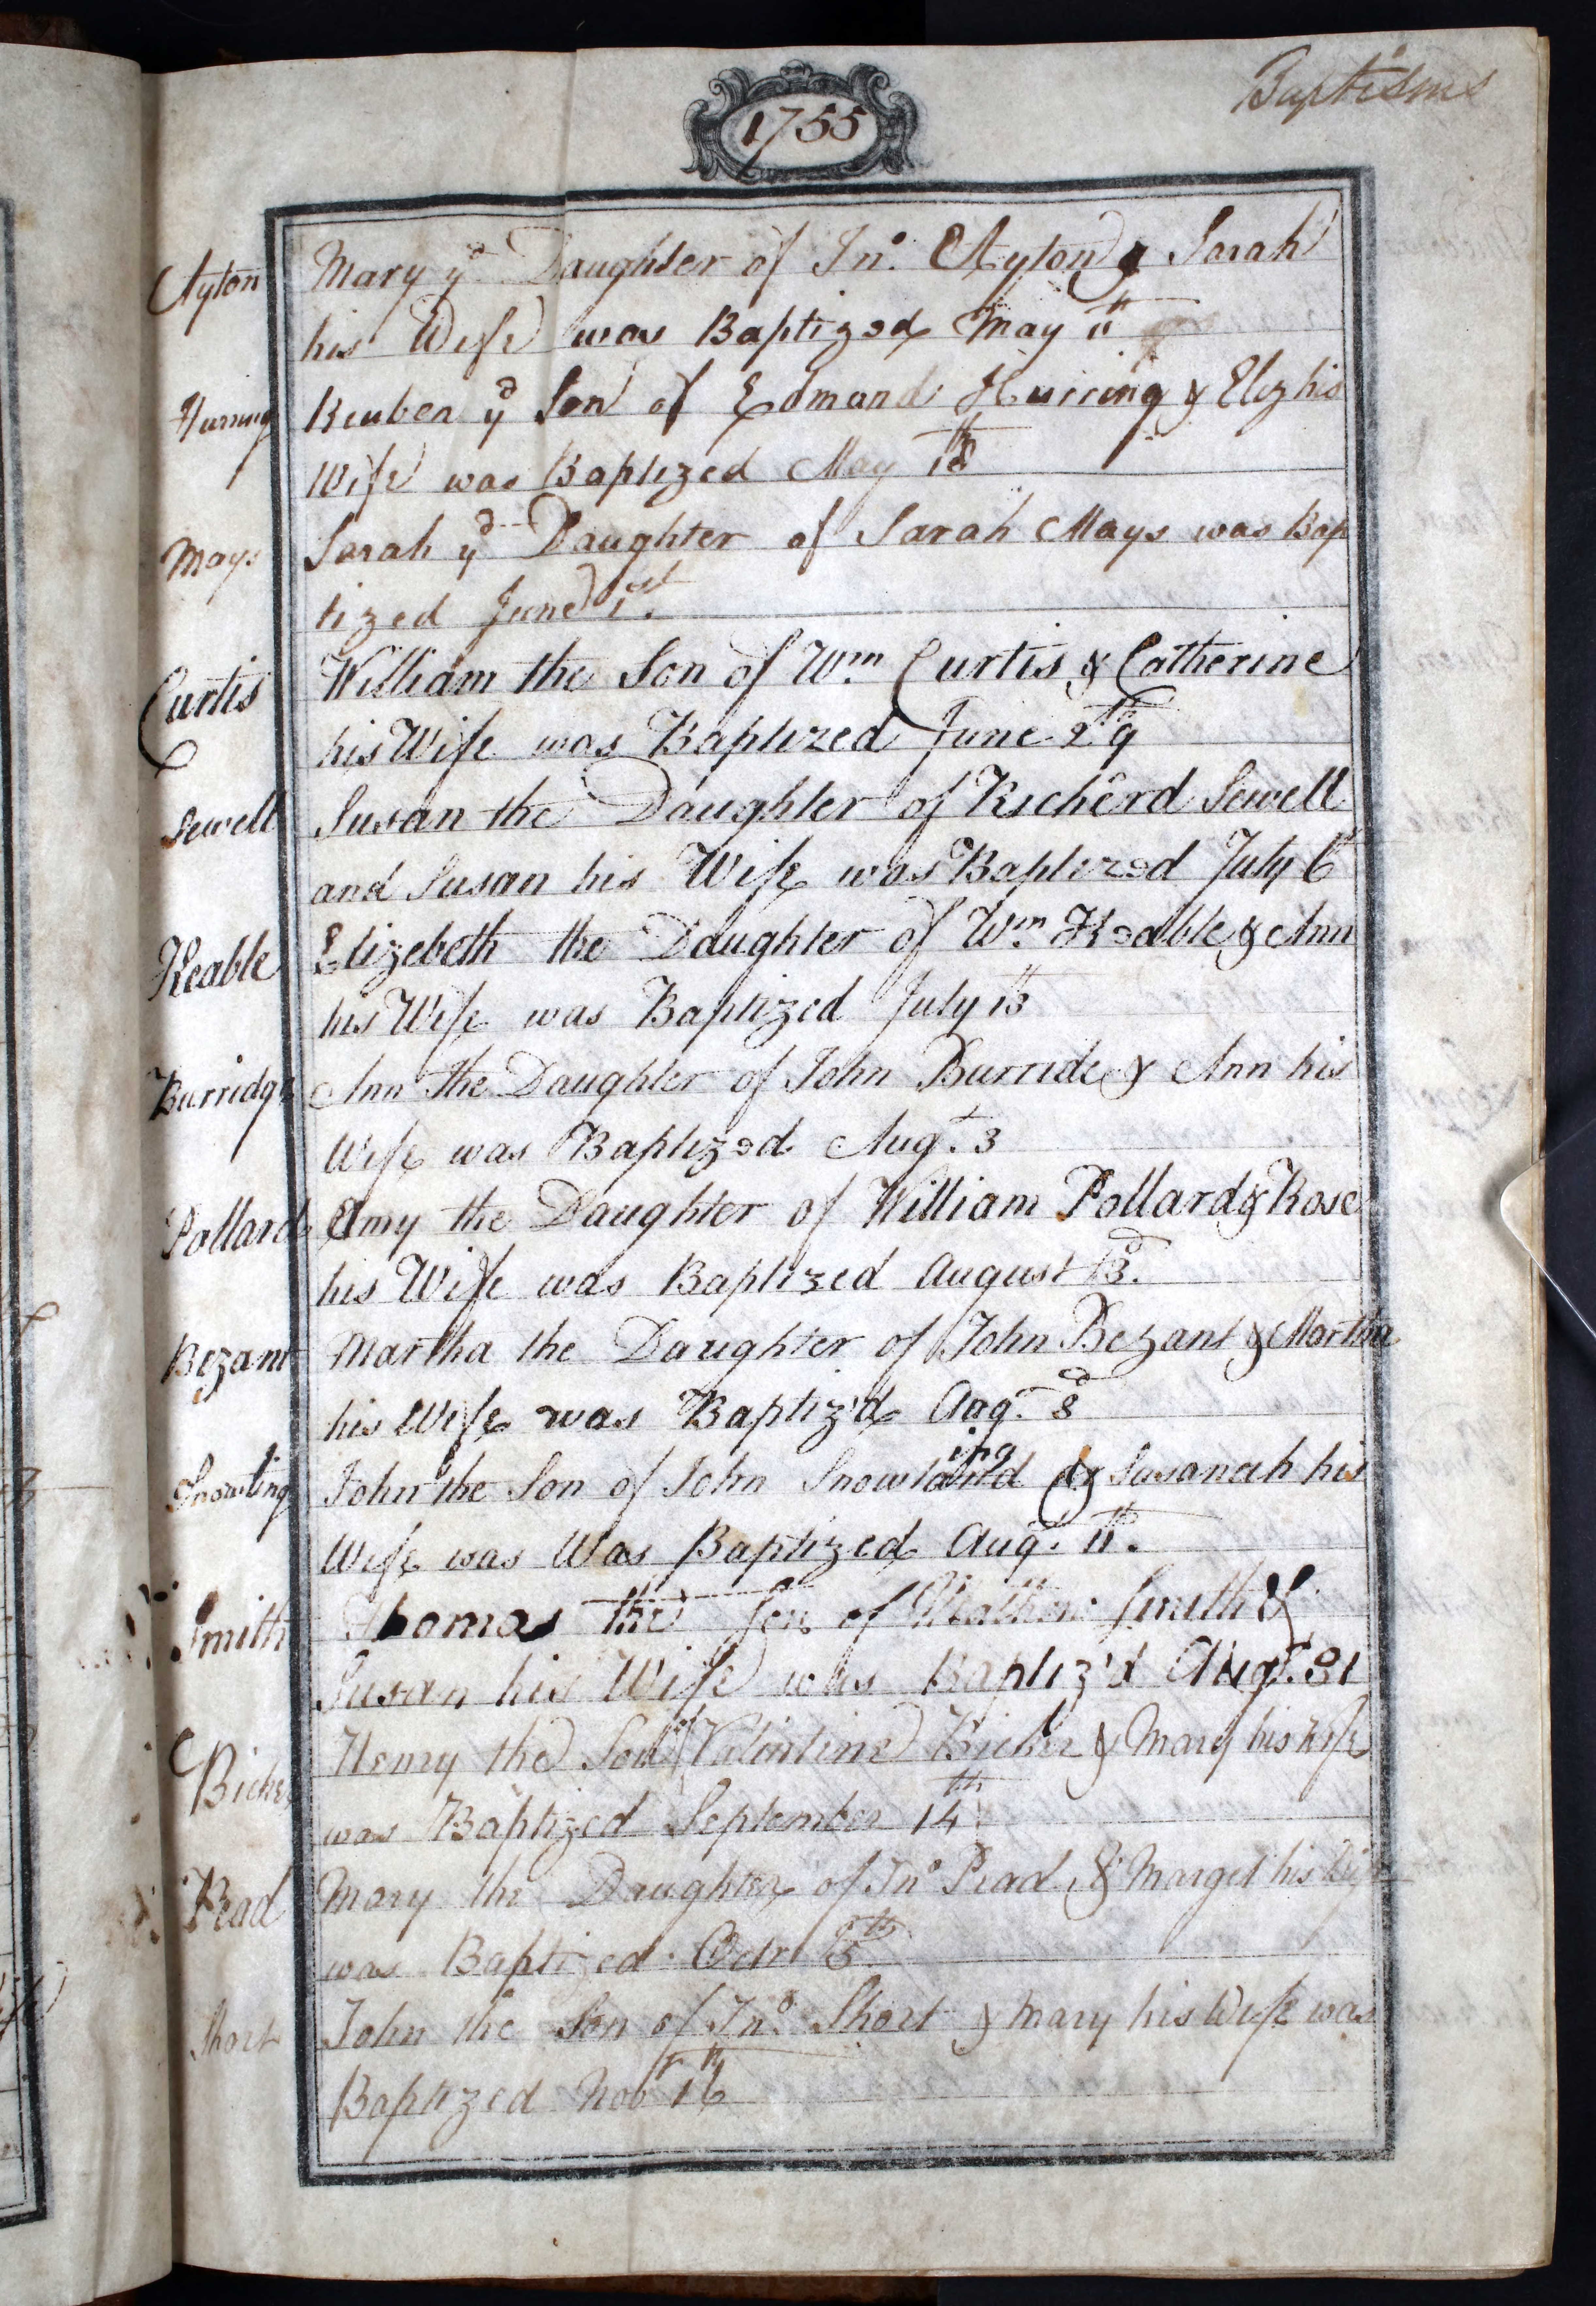 Baptisms
1755
Ayton Mary ye Daughter of Jno. Ayton & Sarah
his Wife was Baptized May 11th
Hurring Reuben ye Son of Edmand Hurring & Eliz his
Wife was Baptized May 18th
Mays Sarah ye Daughter of Sarah Mays was Bap
tized June 1st.
Curtis William the Son of Wm Curtis & Catherine
his Wife was Baptized June 29th
Sewell Susan the Daughter of Richerd Sewell
and Susan his Wife was Baptized July 6th
Keable Elizebeth the Daughter of Wm Keable & Ann
his Wife was Baptized July 13th
Burridge Ann the Daughter of John Burride & Ann his
Wife was Baptized Augt. 3
Pollard Amy the Daughter of William Pollard & Rose
his Wife was Baptized August 13.
Bezant Martha the Daughter of John Bezant & Martha
his Wife was Baptiz'd Aug. 8
Snowling John the Son of John Snowling & Susanah his
Wife was Was Baptized Aug. 11th.
Smith Thomas the Son of Mathew Smith &
Susan his Wife was Baptiz'd Augt. 31
Bicker Henry the Son of Valintine Bicker & Mary his Wife
was Baptized September 14th
Read Mary the Daughter of Jno Read & Marget his Wife
was Baptized Octr 5th
Short John the Son of Jno. Short & Mary his Wife was
Baptized Nobr 16th